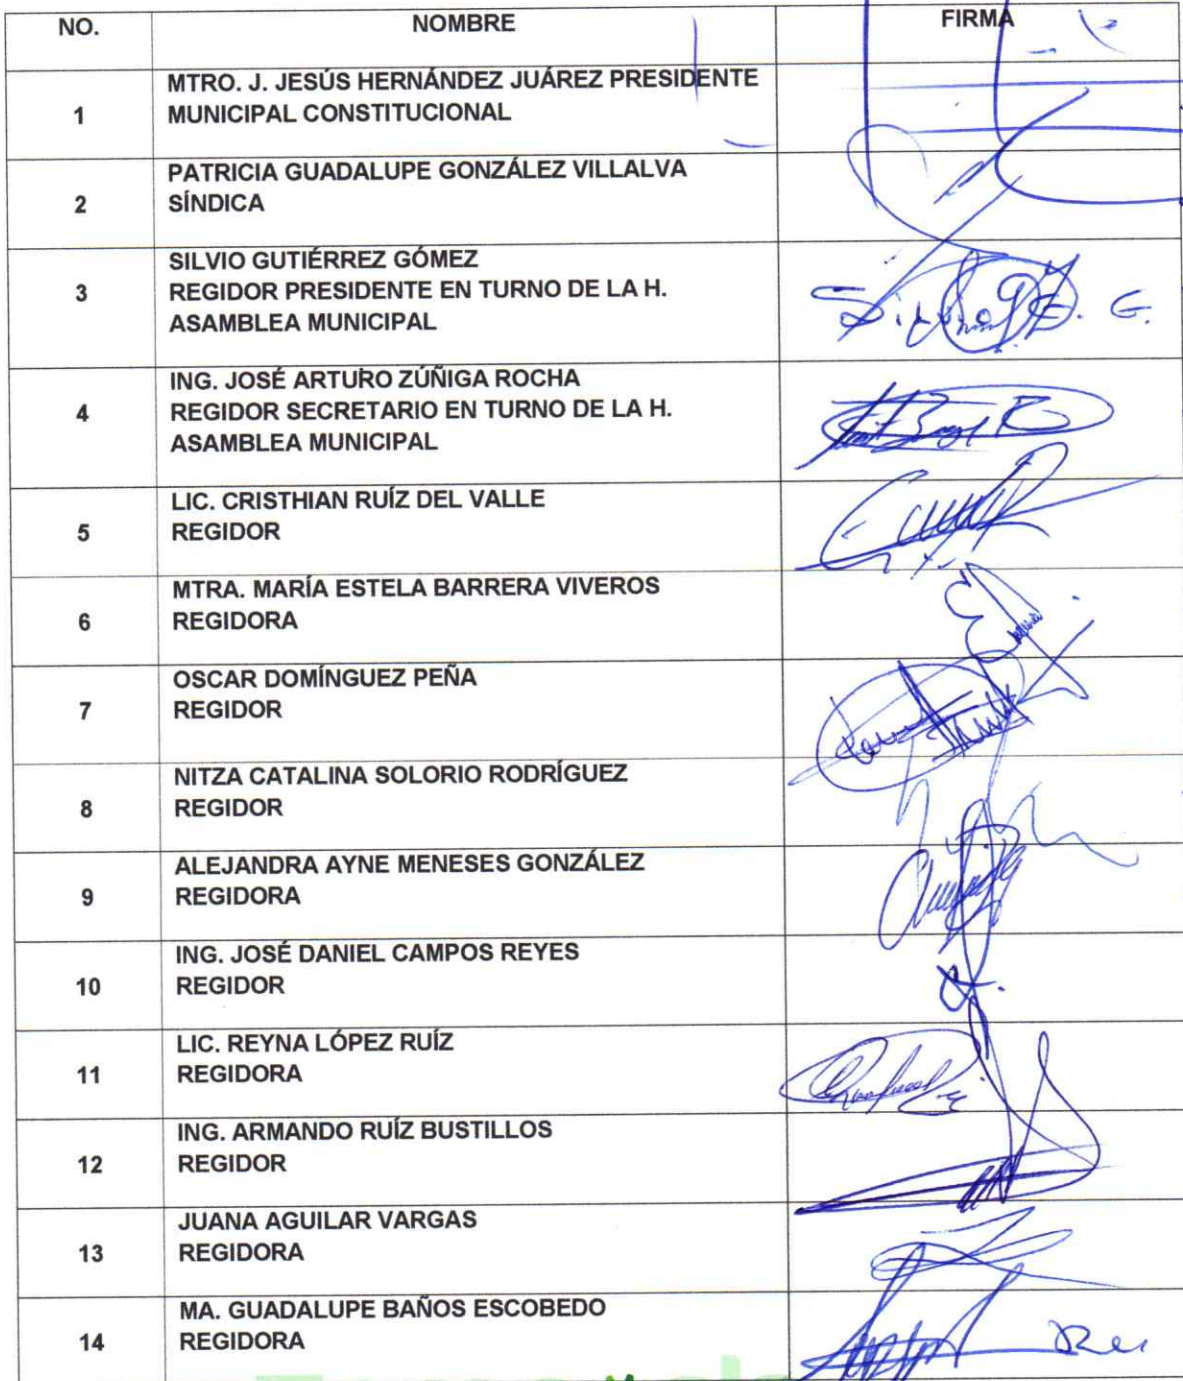 NO. NOMBRE FIRMA
MTRO. J. JESÚS HERNÁNDEZ JUÁREZ PRESIDENTE
1 MUNICIPAL CONSTITUCIONAL
PATRICIA GUADALUPE GONZÁLEZ VILLALVA
2 SÍNDICA
SILVIO GUTIÉRREZ GÓMEZ
3 REGIDOR PRESIDENTE EN TURNO DE LA H.
ASAMBLEA MUNICIPAL
ING. JOSÉ ARTURO ZÚÑIGA ROCHA
4 REGIDOR SECRETARIO EN TURNO DE LA H.
ASAMBLEA MUNICIPAL
LIC. CRISTHIAN RUÍZ DEL VALLE
5 REGIDOR
MTRA. MARÍA ESTELA BARRERA VIVEROS
6 REGIDORA
OSCAR DOMÍNGUEZ PEÑA
7 REGIDOR
NITZA CATALINA SOLORIO RODRÍGUEZ
8 REGIDOR
ALEJANDRA AYNE MENESES GONZÁLEZ
9 REGIDORA
ING. JOSÉ DANIEL CAMPOS REYES
10 REGIDOR
LIC. REYNA LÓPEZ RUÍZ
11 REGIDORA
ING. ARMANDO RUÍZ BUSTILLOS
12 REGIDOR
JUANA AGUILAR VARGAS
13 REGIDORA
MA. GUADALUPE BAÑOS ESCOBEDO
14 REGIDORA